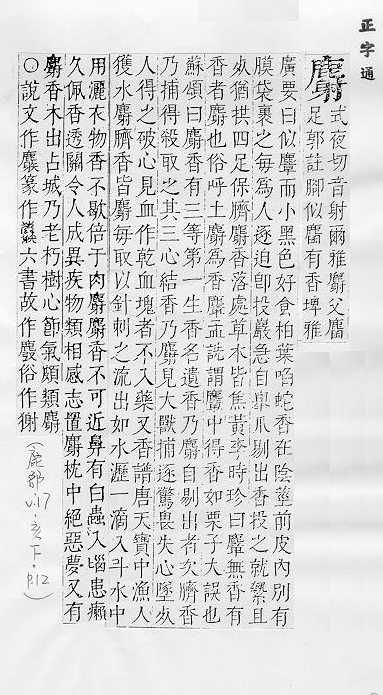 正字通
麝
式夜切音射爾雅麝父麕
足郭註腳似麕有香埤雅
廣要曰似麞而小黑色好食柏葉啗蛇香在陰莖前皮內別有
膜袋裹之每為人逐迫卽投巖急自舉爪剔出香投之就縶且
死猶拱四足保臍麝香落處草木皆焦黃李時珍曰麞無香有
香者麝也俗呼土麝為香麞孟詵謂麞中得香如栗子大誤也
蘇頌曰麝香有三等第一生香名遺香乃麝自剔出者次臍香
乃捕得殺取之其三心結香乃麝見大獸捕逐驚畏失心墜死
人得之破心見血作乾血塊者不入藥又香譜唐天寶中漁人
獲水麝臍香皆麝每取以針刺之流出如水瀝一滴入斗水中
用灑衣物香不歇倍于肉麝麝香不可近鼻有白蟲入腦患癩
久佩香透關令人成異疾物類相感志置麝枕中絕惡夢又有
麝香木出占城乃老朽樹心節氣頗類麝
○說文作篆作六書故作俗作
(鹿部 v.17·亥下·P.12)